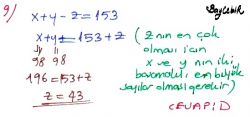 9) x+y-z=153
x+y=153+z
98 98
196=153+z
z=43
(z nın en çok
olması için
x ve y nin iki
basamaklı en büyük
sayılar olması gerekir)
CEVAP: D